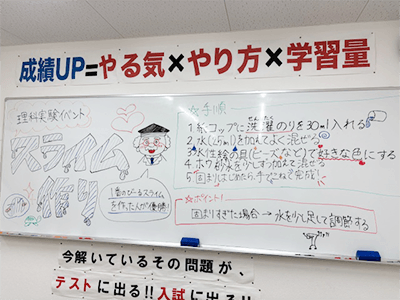 成績UP=やる気×やり方×学習量
理科実験イベント
スライム
作り
1番のび〜るスライム
を作った人が優勝!
☆手順
1 紙コップに洗濯のりを30ml入れる
2 水(しょうりょう)を加えてよく混ぜる
3 水性絵の具(ビーズなど)で好きな色にする
4 ホウ砂水を少しずつ加えて混ぜる
5 固まりはじめたら手でこねて完成!
☆ポイント!
固まりすぎた場合→水を少し足して調節する
今解いているその問題が、
テストに出る!!入試に出る!!